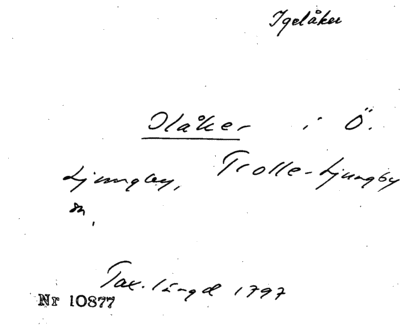 Igelåker
Ilåker i Ö.
Ljungby, Trolle-Ljungby
sn.
Tax. längd 1797
Nr 10877